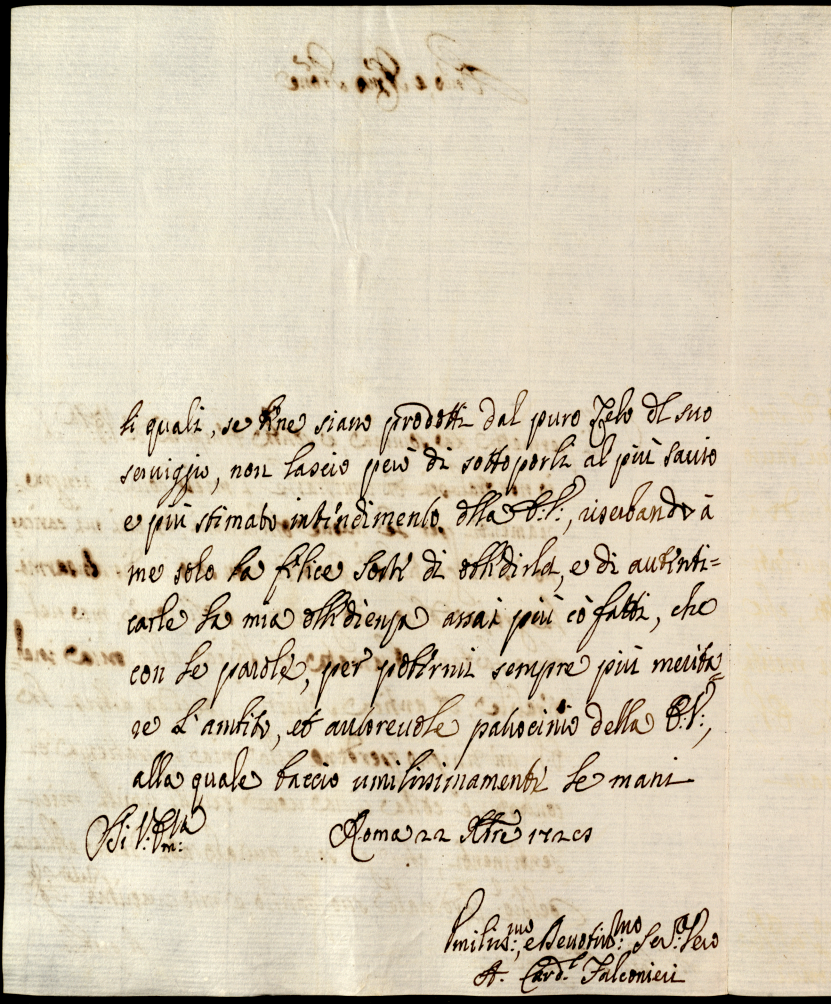 li quali, se bene siano prodotti dal puro Zelo del suo
seruiggio, non lascio però di sottoporli al più sauio
e più stimato intendimento della E.V., riserbando à
me solo la felice sorte di obbedirla, e di autenti=
carle la mia obbedienza assai più cõ fatti, che
con le parole, per potermi sempre più merita=
re l'ambito, et autoreuole patrocinio della E.V.,
alla quale baccio umilissimamente le mani
Di V. Em.za Roma 22 Xbre 172
Umiliss.mo, e Deuotiss.mo Ser.e Vero
A. Card.l Falconieri